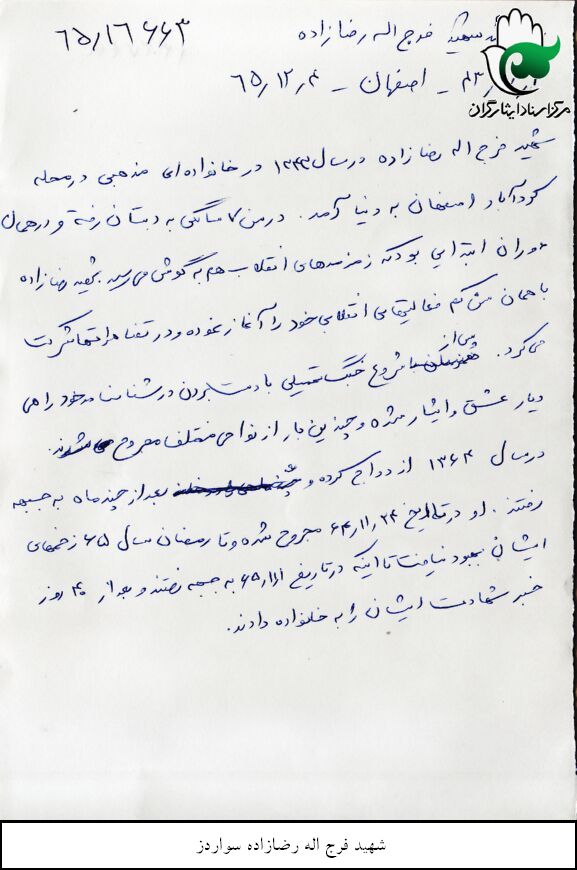 شهید فرج اله رضازاده
۶۵/۱۶۶۶۳
۴۳ - اصفهان - ۶۵/۱۲/۴
مرکز اسناد ایثارگران
شهید فرج اله رضازاده در سال ۱۳۴۳ در خانواده‌ای مذهبی در محله
کردآباد اصفهان به دنیا آمد. در سن ۷ سالگی به دبستان رفته و در همان
دوران ابتدایی بود که زمزمه‌های انقلاب هم به گوش می‌رسید شهید رضازاده
با همان سن کم فعالیتهای انقلابی خود را آغاز نموده و در تظاهراتها شرکت
می‌کرد. پس از شروع جنگ تحمیلی با دست بردن در شناسنامه خود راهی
دیار عشق و ایثار شده و چندین بار از نواحی مختلف مجروح شدند.
در سال ۱۳۶۴ ازدواج کرده و بعد از چند ماه به جبهه
رفتند. او در تاریخ ۶۴/۱۱/۲۴ مجروح شده و تا رمضان سال ۶۵ زخمهای
ایشان بهبود نیافت تا اینکه در تاریخ به جبهه رفتند و بعد از ۴۰ روز
خبر شهادت ایشان را به خانواده دادند.
شهید فرج اله رضازاده سواردز